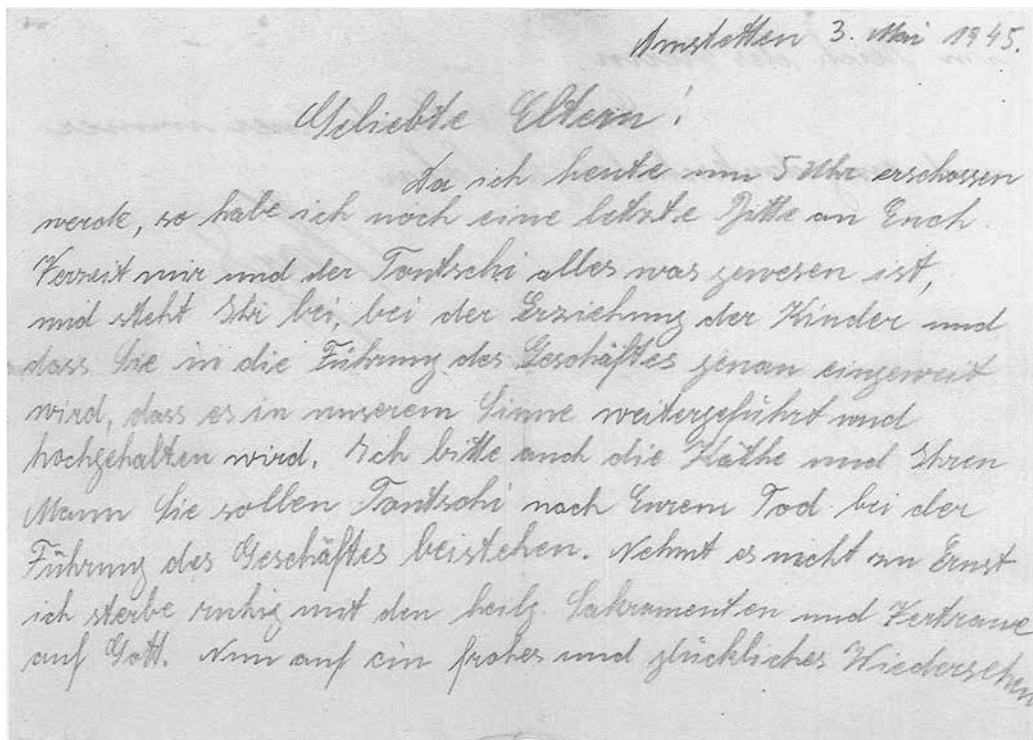 Amstetten 3. Mai 1945.
Geliebte Eltern!
Da ich heute um 5 Uhr erschossen
werde, so habe ich noch eine letzte Bitte an Euch.
Verzeit mir und der Tontschi alles was gewesen ist,
und steht Ihr bei, bei der Erziehung der Kinder und
dass Sie in die Führung des Geschäftes genau eingeweit
wird, dass es in unserem Sinne weitergeführt und
hochgehalten wird. Ich bitte auch die Käthe und Ihren
Mann Sie sollen Tontschi nach Eurem Tod bei der
Führung des Geschäftes beistehen. Nehmt es nicht zu Ernst
ich sterbe ruhig mit den heilg. Sakramenten und Vertraue
auf Gott. Nun auf ein frohes und glückliches Wiedersehen